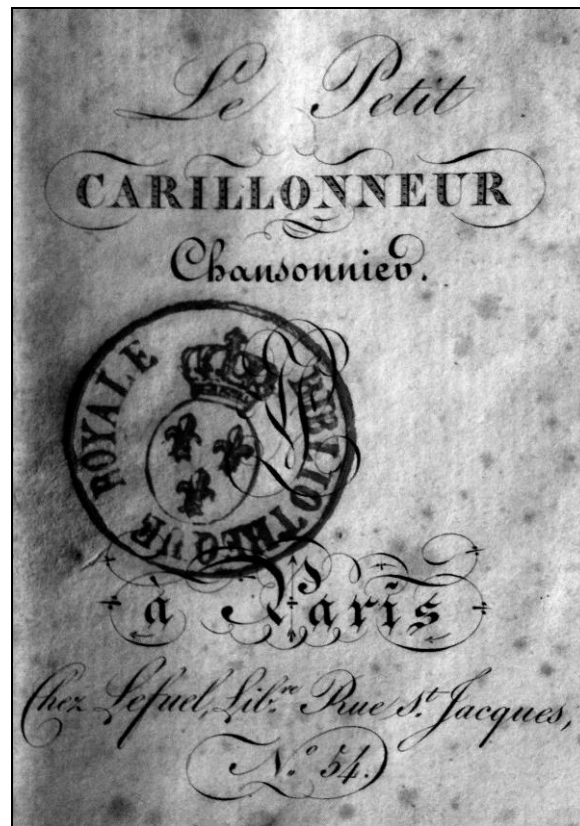 Le Petit
CARILLONNEUR
Chansonnier.
BIBLIOTHEQUE ROYALE
à Paris
Chez Lefuel, Lib.re Rue St. Jacques,
N.o 54.